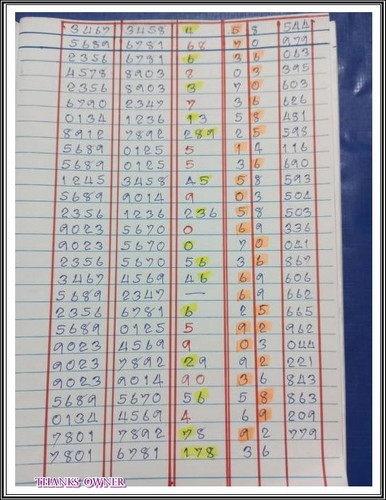 3467 3458 4 58 544
5689 6781 68 70 979
2356 6781 6 36 063
4578 8903 7 03 395
2356 8903 3 70 603
6790 2347 7 36 626
0134 1236 13 58 481
8912 7892 289 25 598
5689 0125 5 14 116
5689 0125 5 36 690
1245 3458 45 58 593
5689 9014 9 03 504
2356 1236 236 58 503
9023 5670 0 69 336
9023 5670 0 70 041
2356 5670 56 36 867
3467 4569 46 69 606
5689 2347 — 69 662
2356 6781 6 25 665
5689 0125 5 92 962
9023 4569 9 03 044
9023 7892 29 92 221
9023 9014 90 36 843
5689 5670 56 58 863
0134 4569 4 69 209
7801 7892 78 92 779
7801 6781 178 36
THANKS OWNER